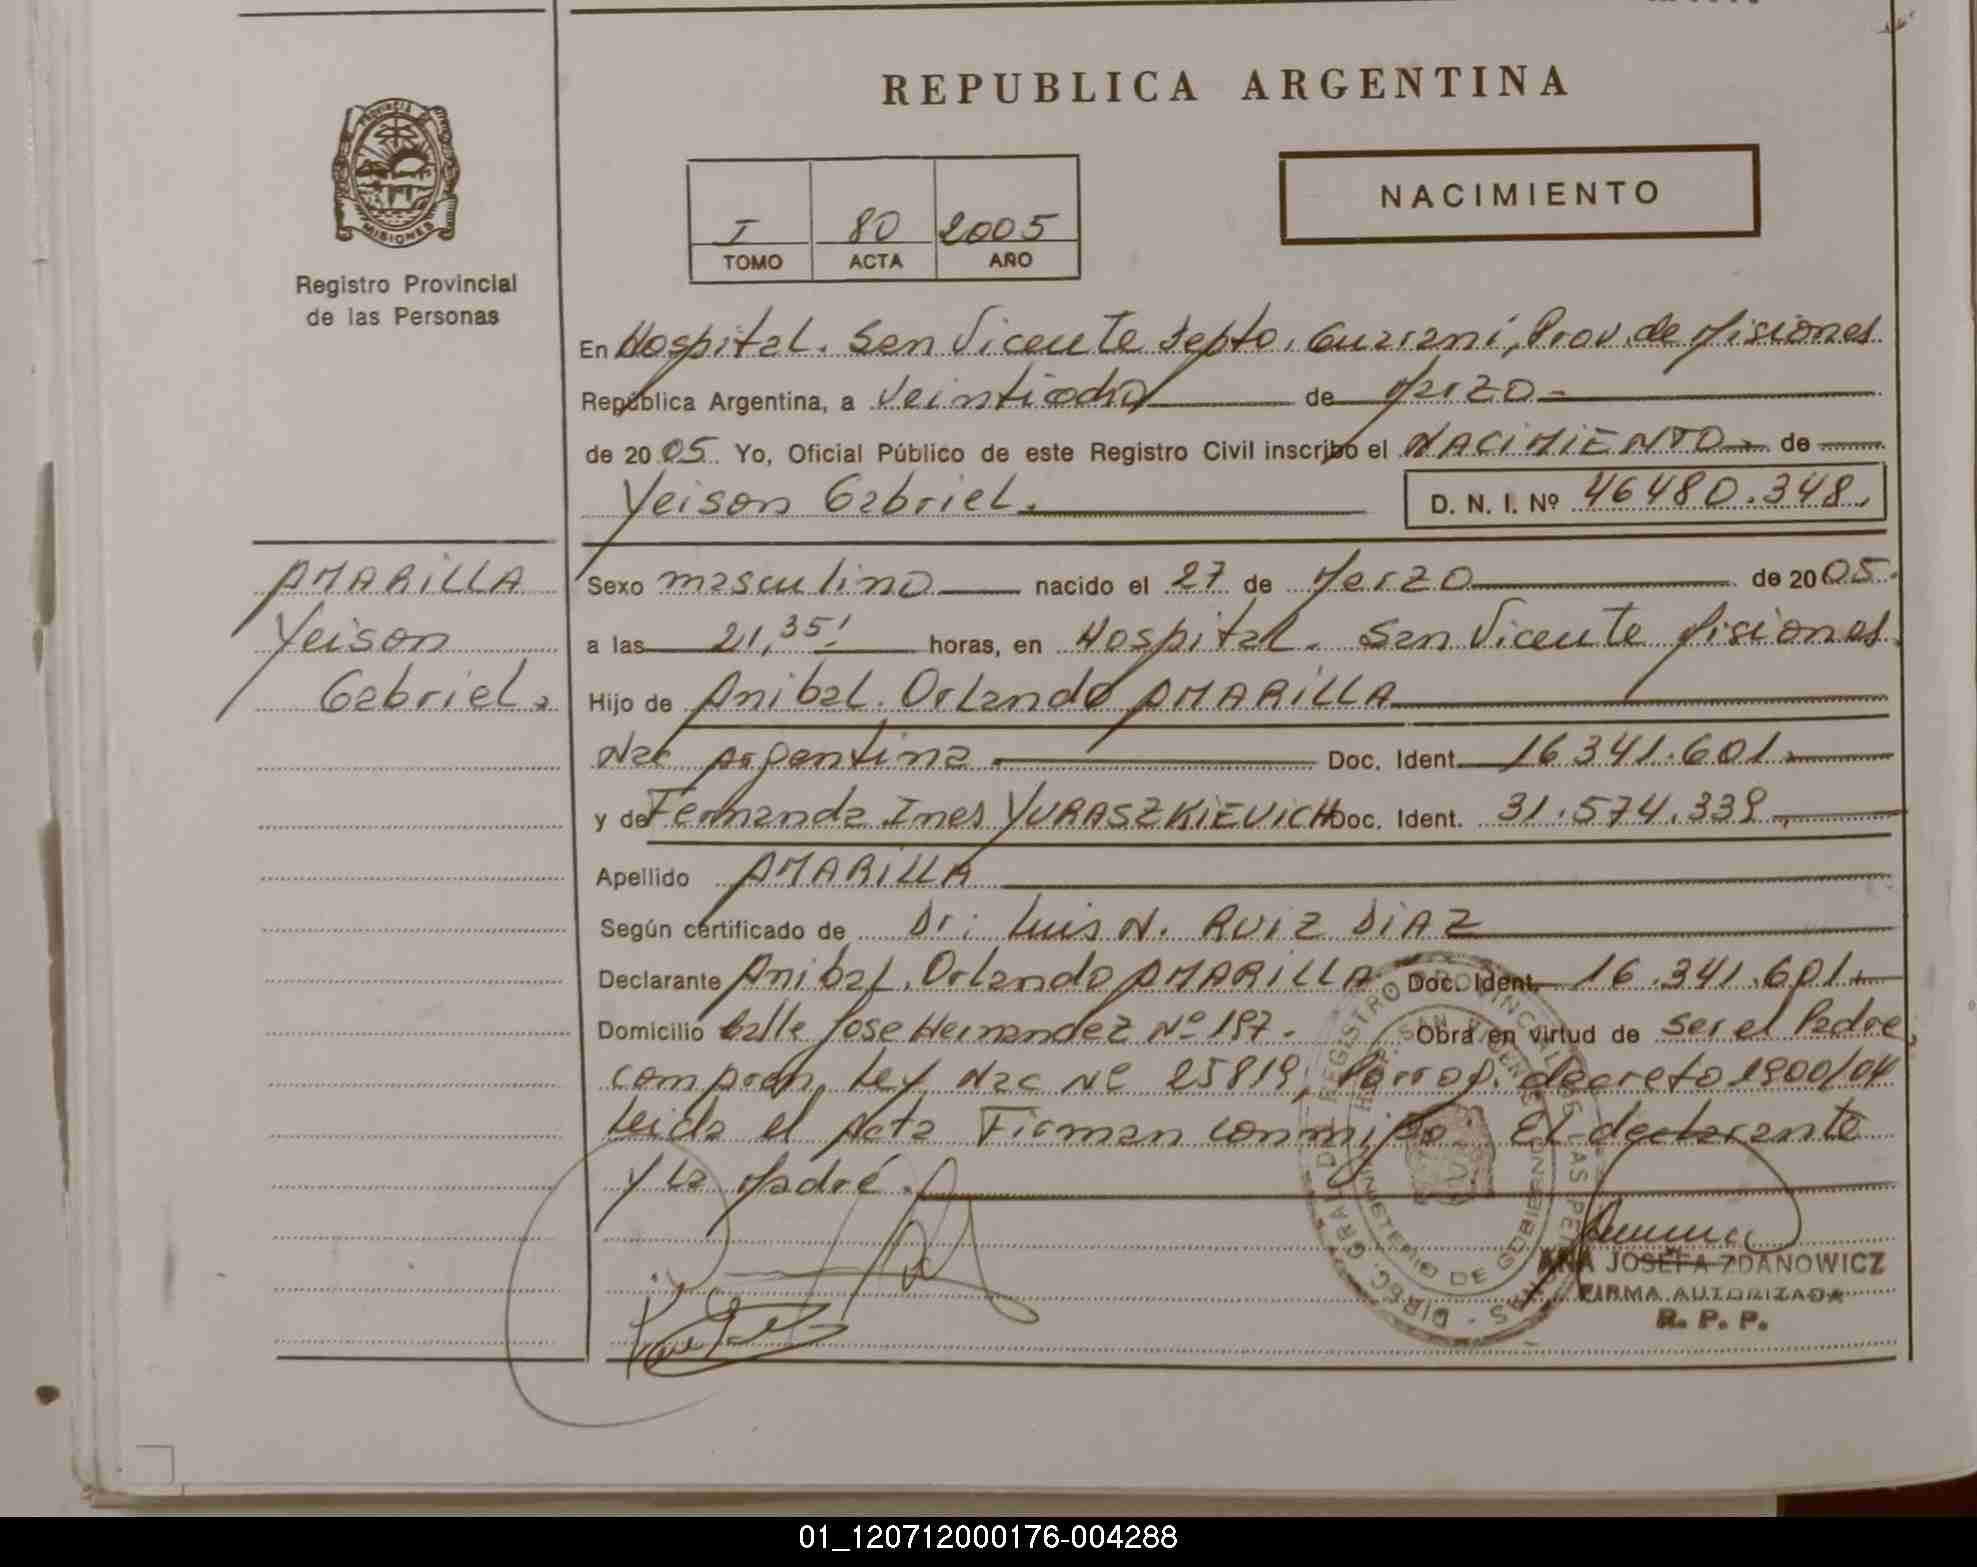 REPUBLICA ARGENTINA
PROVINCIA DE
MISIONES
Registro Provincial
de las Personas
I 80 2005
TOMO ACTA AÑO
NACIMIENTO
En Hospital. San Vicente Depto. Guarani, Prov. de Misiones
República Argentina, a Veintiocho de Marzo
de 2005. Yo, Oficial Público de este Registro Civil inscribo el NACIMIENTO de
Yeison Gabriel. D. N. I. Nº 46480.348.
AMARILLA
Yeison
Gabriel
Sexo masculino nacido el 27 de Marzo de 2005.
a las 21,35' horas, en Hospital. San Vicente Misiones.
Hijo de Anibal. Orlando AMARILLA
Nac Argentina Doc. Ident. 16341.601.
y de Fernanda Ines YURASZKIEVICH Doc. Ident. 31.574.339
Apellido AMARILLA
Según certificado de Dr: Luis N. RUIZ DIAZ
Declarante Anibal. Orlando AMARILLA Doc. Ident. 16.341.601
Domicilio Calle Jose Hernandez Nº 197. Obra en virtud de ser el Padre,
Ley Nac Nº 25819, decreto 1900/04
Leida el Acta Firman conmigo: El declarante
y La Madre.
DIREC. GRAL. DE REGISTRO PROVINCIAL DE LAS PERSONAS
SAN VICENTE
MINISTERIO DE GOBIERNO
ANA JOSEFA ZDANOWICZ
FIRMA AUTORIZADA
R. P. P.
01_120712000176-004288